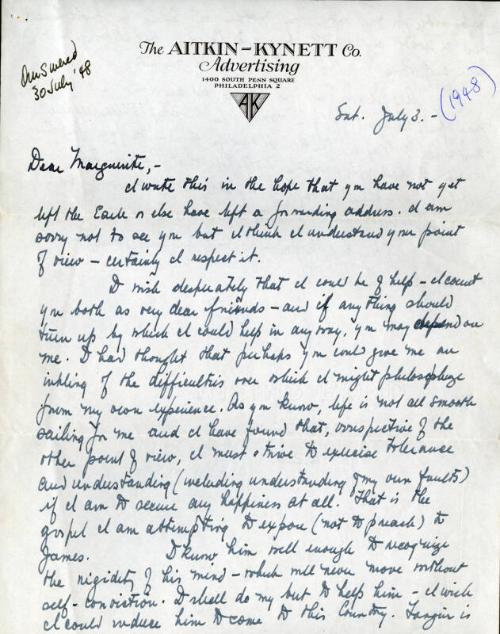 Answered
30 July '48
The AITKIN-KYNETT Co.
Advertising
1400 SOUTH PENN SQUARE
PHILADELPHIA 2
AK
Sat. July 3. -
(1948)
Dear Marguerite, -
I write this in the hope that you have not yet
left the Earle or else have left a forwarding address. I am
sorry not to see you but I think I understand your point
of view - certainly I respect it.
I wish desperately that I could be of help - I count
you both as very dear friends - and if any thing should
turn up by which I could help in any way, you may depend on
me. I had thought that perhaps you could give me an
inkling of the difficulties over which I might philosophize
from my own experience. As you know, life is not all smooth
sailing for me and I have found that, irrespective of the
other point of view, I must strive to exercise tolerance
and understanding (including understanding of my own faults)
if I am to secure any happiness at all. That is the
gospel I am attempting to expose (not to preach) to
James. I know him well enough to recognize
the rigidity of his mind - which will never move without
self-conviction. I shall do my best to help him - I wish
I could induce him to come to this Country. Tangier is